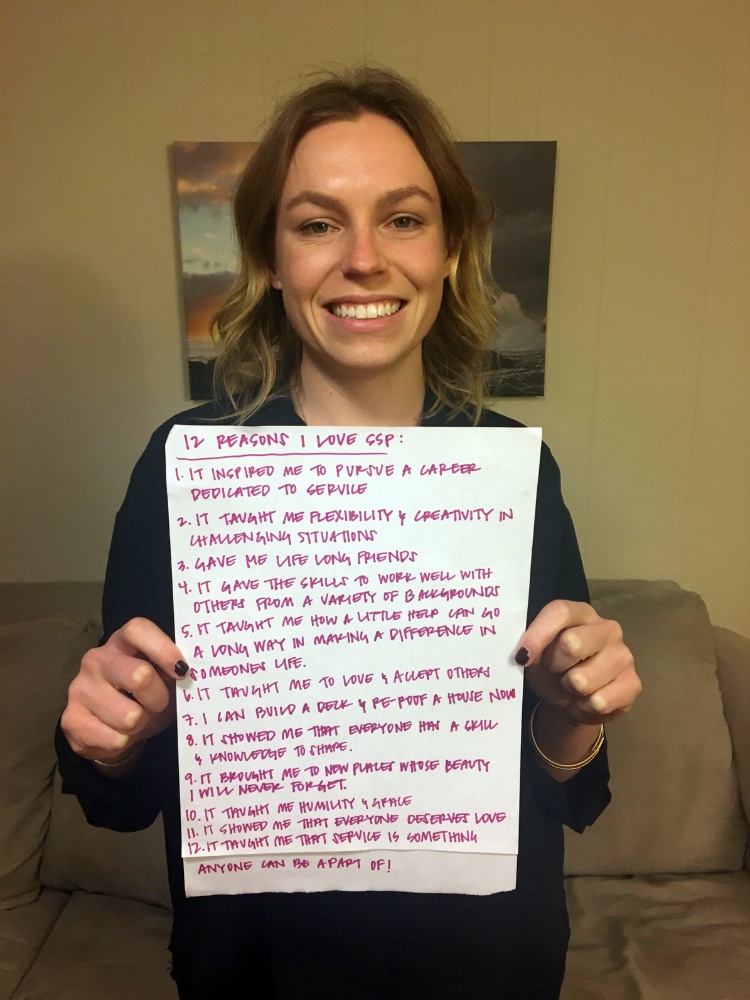 12 REASONS I LOVE SSP:
1. IT INSPIRED ME TO PURSUE A CAREER
DEDICATED TO SERVICE
2. IT TAUGHT ME FLEXIBILITY & CREATIVITY IN
CHALLENGING SITUATIONS
3. GAVE ME LIFE LONG FRIENDS
4. IT GAVE THE SKILLS TO WORK WELL WITH
OTHERS FROM A VARIETY OF BACKGROUNDS
5. IT TAUGHT ME HOW A LITTLE HELP CAN GO
A LONG WAY IN MAKING A DIFFERENCE IN
SOMEONES LIFE.
6. IT TAUGHT ME TO LOVE & ACCEPT OTHERS
7. I CAN BUILD A DECK & RE-ROOF A HOUSE NOW
8. IT SHOWED ME THAT EVERYONE HAS A SKILL
& KNOWLEDGE TO SHARE.
9. IT BROUGHT ME TO NEW PLACES WHOSE BEAUTY
I WILL NEVER FORGET.
10. IT TAUGHT ME HUMILITY & GRACE
11. IT SHOWED ME THAT EVERYONE DESERVES LOVE
12. IT TAUGHT ME THAT SERVICE IS SOMETHING
ANYONE CAN BE A PART OF!